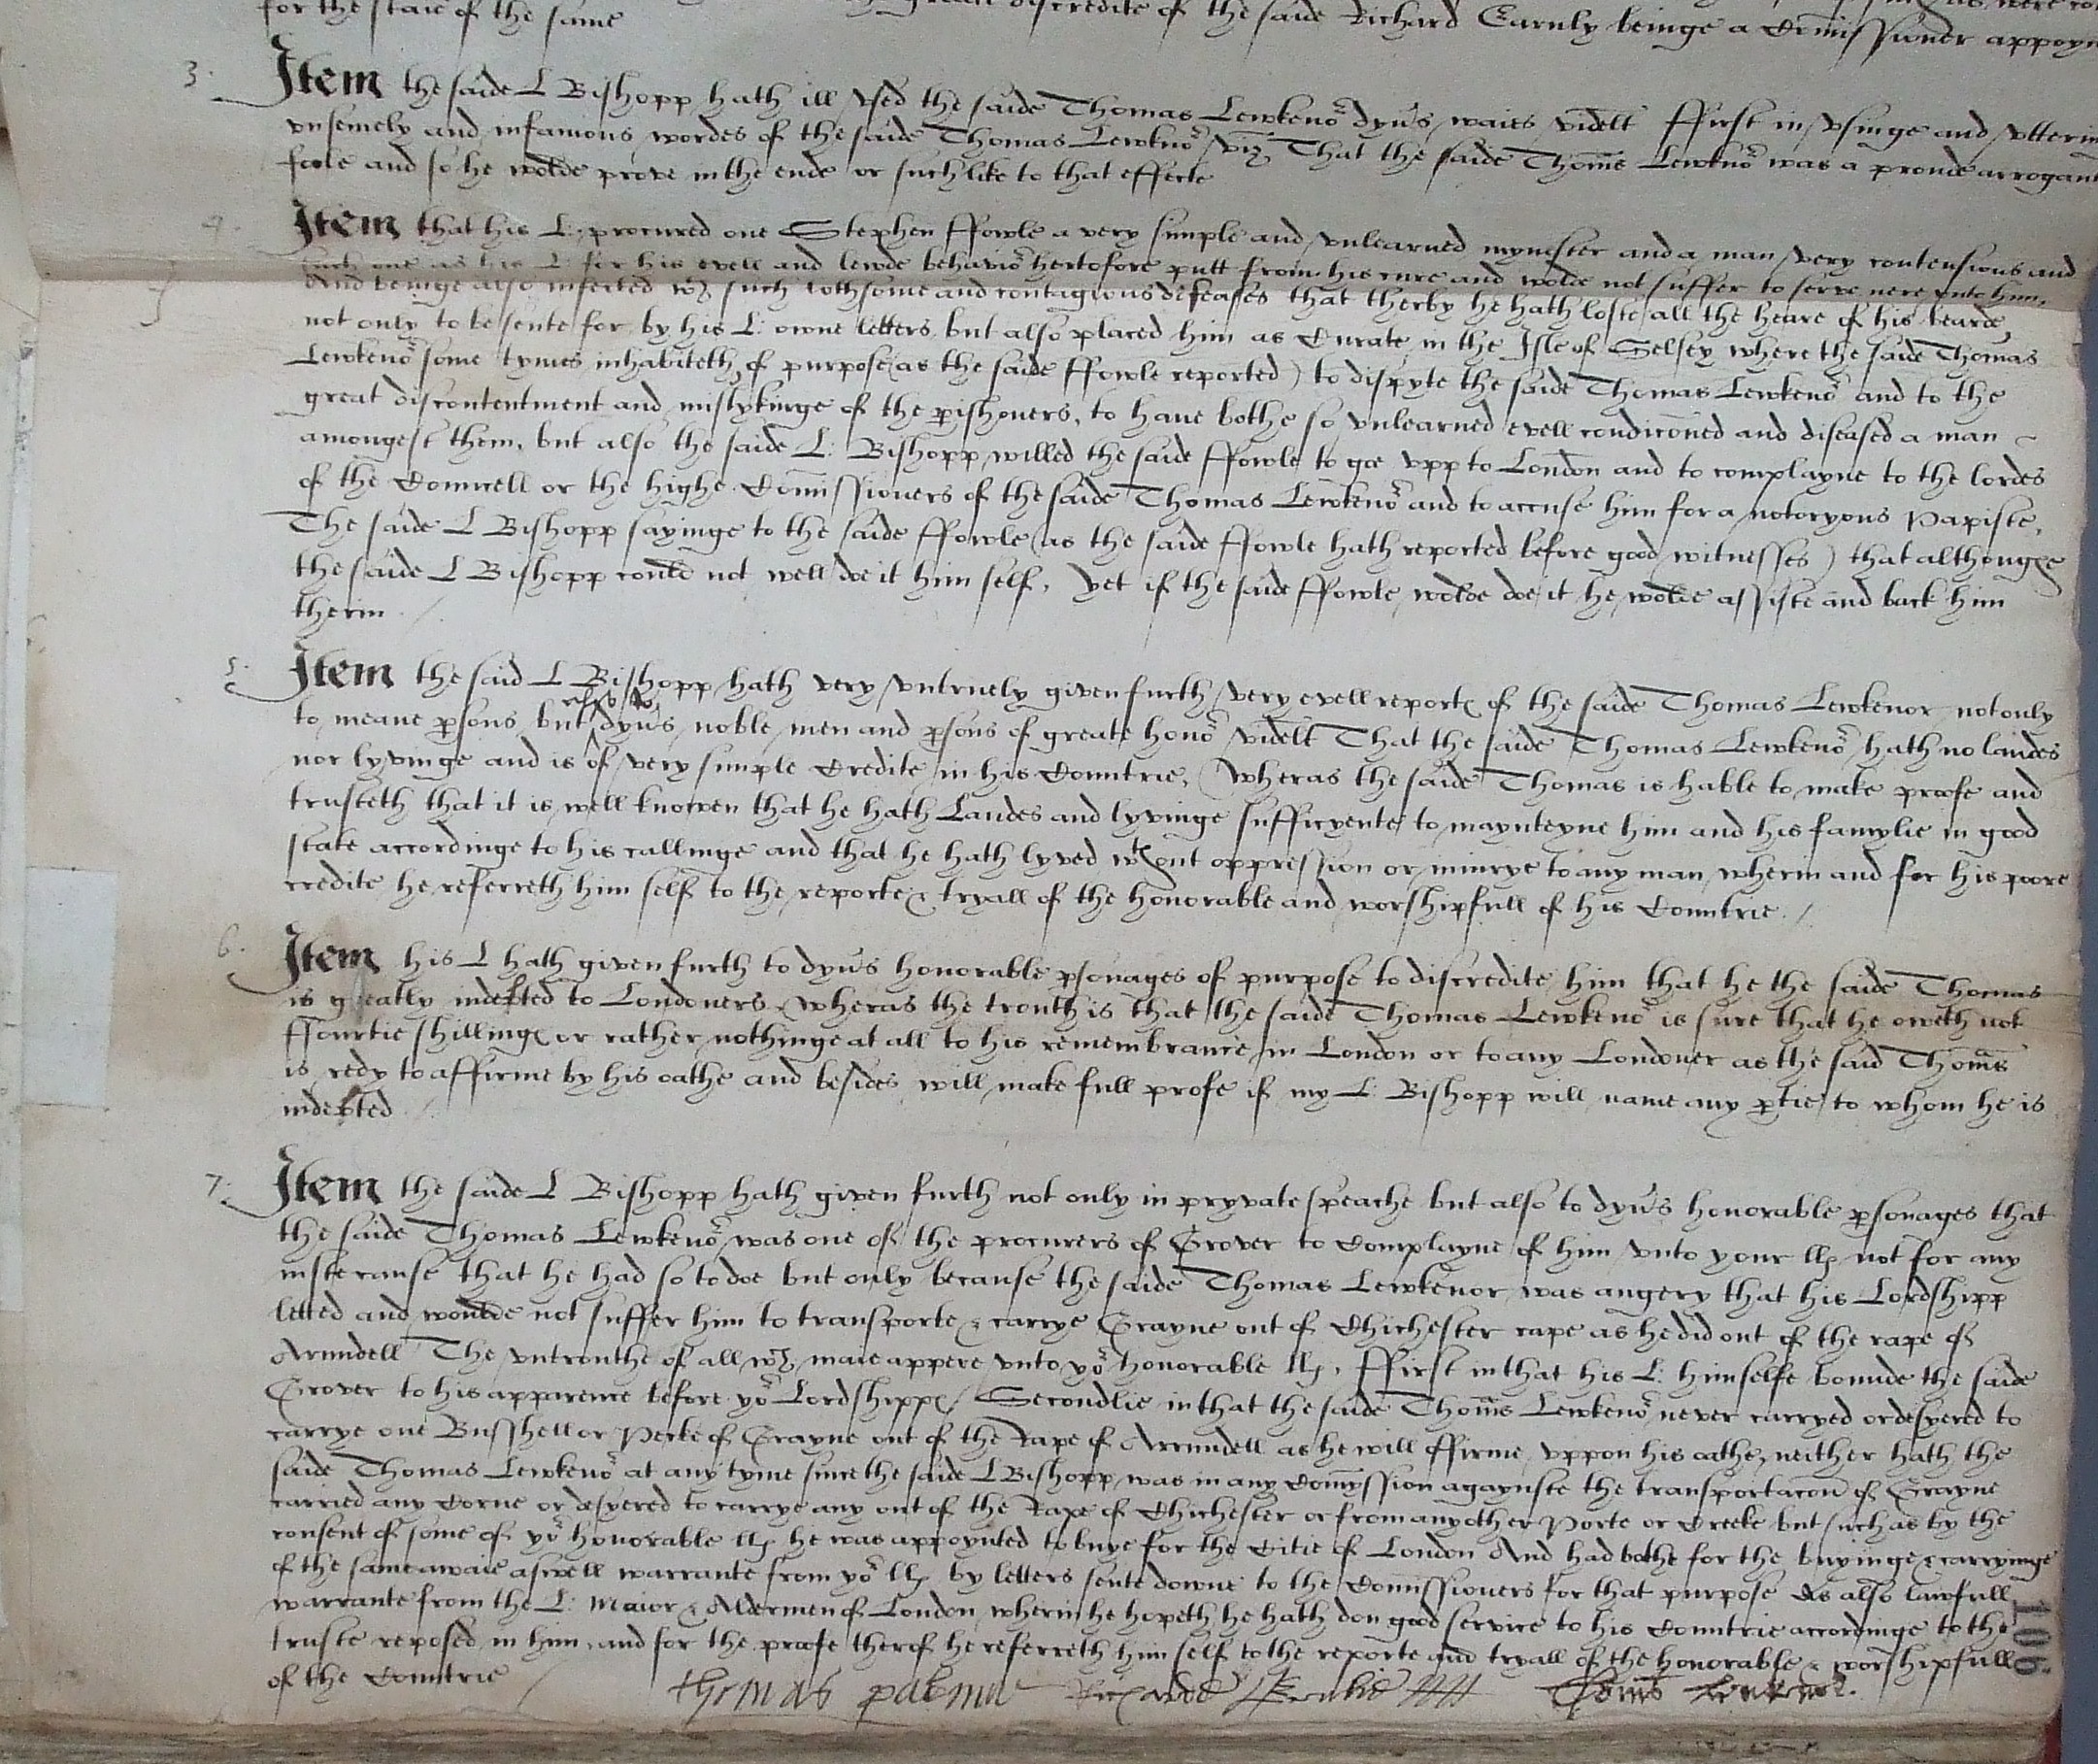 great discredite of the saide Richard Earnly beinge a Com̄issioner appoyn
for the staie of the same
3. Item the saide L Bishopp hath ill vsed the saide Thomas Lewkenor dyu's waies videlt ffirst in vsinge and vtterin
vnsemely and infamous wordes of the saide Thomas Lewknor viz That the saide Thom̄s Lewknor was a proude arrogant
foole and so he wolde prove in the ende or such like to that effecte
4. Item that his L: procured one Stephen ffowle a very simple and vnlearned mynister and a man very contensious and
such one as his L for his evell and lewde behavior hertofore putt from his cure and wolde not suffer to serve nere vnto him,
And beinge also infected wch such lothsome and contagious diseases that therby he hath loste all the heare of his bearde,
not only to be sente for by his L: owne letters, but also placed him as Curate in the Isle of Selsey where the saide Thomas
Lewkenor some tymes inhabiteth, of purpose (as the saide ffowle reported) to dispyte the saide Thomas Lewkenor and to the
great discontentment and mislykinge of the pishoners, to haue bothe so vnlearned evell condicōned and diseased a man
amongest them, but also the saide L: Bishopp willed the saide ffowle to goe vpp to London and to complayne to the lordes
of the Counsell or the highe Com̄issioners of the saide Thomas Lewkenor and to accuse him for a notoryous Papiste,
The saide L Bishopp sayinge to the saide ffowle (as the saide ffowle hath reported before good witnesses) that althoughe
the saide L Bishopp could not well doe it him self, yet if the saide ffowle wolde doe it he wolde assiste and back him
therin
5. Item the said L Bishopp hath very vntruely given furth very evell reportes of the saide Thomas Lewkenor not only
to meane psons but also to dyu's noble men and psons of greate honor videlt That the saide Thomas Lewkenor hath no landes
nor lyvinge and is of very simple Credite in his Countrie, Wheras the saide Thomas is hable to make proofe and
trusteth that it is well knowen that he hath Landes and lyvinge sufficyente to maynteyne him and his famylie in good
state accordinge to his callinge and that he hath lyved wthout oppression or iniurye to any man, wherin and for his poore
credite he referreth him self to the reporte & tryall of the honorable and worshipfull of his Countrie.
6. Item his L hath given furth to dyu's honorable psonages of purpose to discredite him that he the saide Thomas
is greatly indebted to Londoners, wheras the trouth is that the saide Thomas Lewkenor is sure that he oweth not
ffourtie shillinges or rather nothinge at all to his remembrance in London or to any Londoner as the said Thom̄s
is redy to affirme by his oathe and besides will make full profe if my L: Bishopp will name any ptie to whom he is
indebted
7. Item the saide L Bishopp hath given furth not only in pryvate speache but also to dyu's honorable psonages that
the saide Thomas Lewkenor was one of the procurers of Grover to Complayne of him vnto your llp not for any
iuste cause that he had so to doe but only because the saide Thomas Lewkenor was angery that his Lordshipp
letted and woulde not suffer him to transporte & carrye Grayne out of Chichester rape as he did out of the rape of
Arundell The vntrouthe of all wch maie appere vnto yor honorable llp, ffirst in that his L: himselfe bounde the saide
Grover to his apparence before yor Lordshippes Secondlie in that the saide Thom̄s Lewkenor never carryed or desyered to
carrye one Busshell or Pecke of Grayne out of the Rape of Arrundell as he will ffirme vppon his oathe, neither hath the
saide Thomas Lewkenor at any tyme since the saide L Bishopp was in any Com̄yssion agaynste the transportacōn of Grayne
carried any Corne or desyered to carrye any out of the Rape of Chichester or from any other Porte or Creeke but such as by the
consent of some of yor honorable llp he was appoynted to buye for the Citie of London And had bothe for the buyinge & carryinge
of the same awaie aswell warrante from yor llp by letters sente downe to the Com̄issioners for that purpose As also lawfull
warrante from the L: Maior & Aldermen of London wherin he hopeth he hath don good service to his Countrie accordinge to the
truste reposed in him, and for the proofe therof he referreth him self to the reporte and tryall of the honorable & worshipfull
of the Countrie
thomas palmer Richarde Ernlie Thom̄s Lewkenor.
106